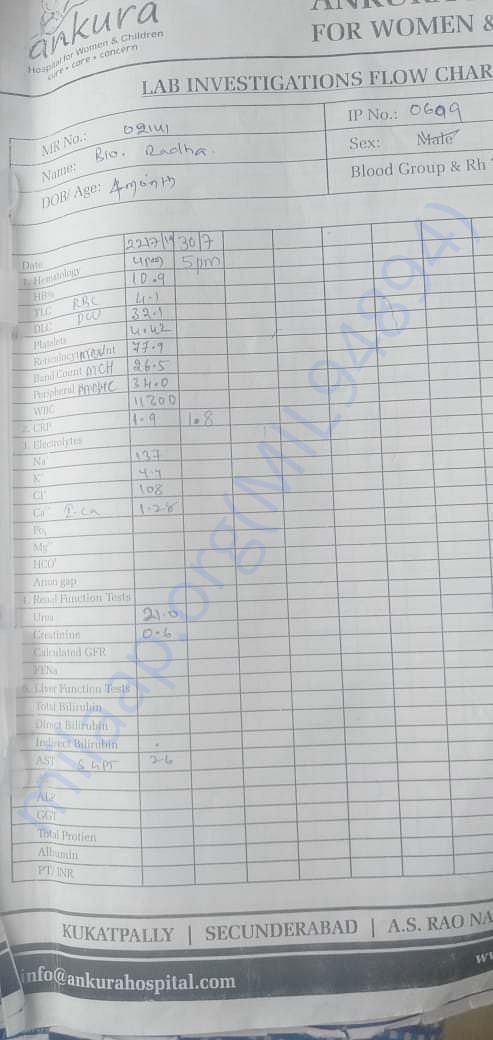 ankura
Hospital for Women & Children
cure • care • concern
FOR WOMEN &
LAB INVESTIGATIONS FLOW CHAR
MR No.: 02141
IP No.: 0699
Name: B/o. Radha.
Sex: Male
DOB/ Age: 4 month
Blood Group & Rh
Date 22/7/19 30/7
5pm
1. Hematology
HB% 10.9
TLC RBC 4.1
DLC PCV 32.1
Platelets 4.42
Reticulocyte Count MCV 77.9
Band Count MCH 26.5
Peripheral MCHC 34.0
WBC 11200
2. CRP 1.9 1.8
3. Electrolytes
Na 137
K+ 4.4
Cl- 108
Ca++ I.Ca 1.28
Po4
Mg++
HCO3
Anion gap
4. Renal Function Tests
Urea 21.0
Creatinine 0.6
Calculated GFR
FENa
5. Liver Function Tests
Total Bilirubin
Direct Bilirubin
Indirect Bilirubin
AST SGPT 26
ALP
GGT
Total Protien
Albumin
PT/ INR
milaap.org(MIL94894)
KUKATPALLY | SECUNDERABAD | A.S. RAO NA
info@ankurahospital.com